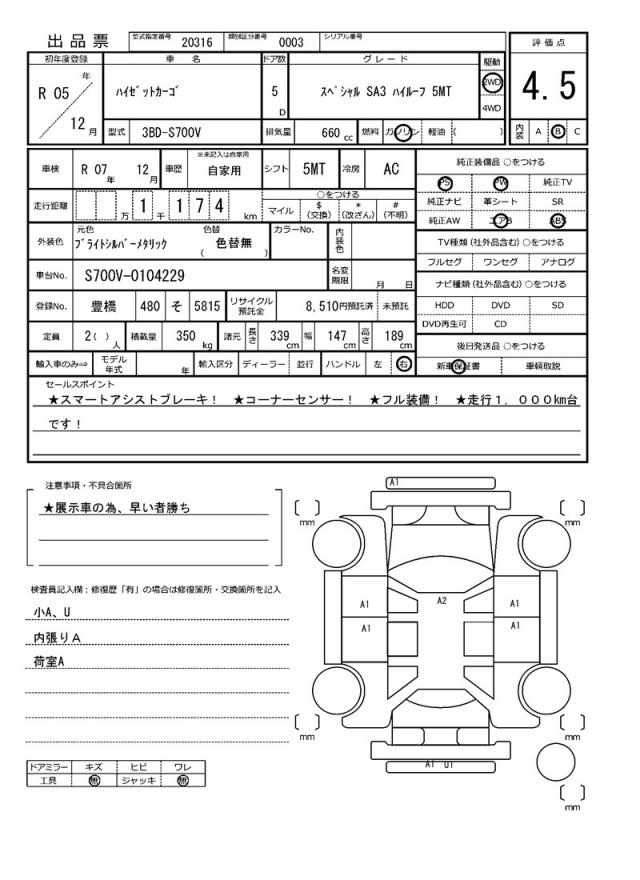 出品票
型式指定番号 20316 類別区分番号 0003 シリアル番号
初年度登録 車名 ドア数 グレード 駆動 評価点
R 05 年 12 月 ハイゼットカーゴ 5 D スペシャル SA3 ハイルーフ 5MT 2WD 4WD 4.5
型式 3BD-S700V 排気量 660 cc 燃料 ガソリン 軽油 ( ) 内装 A B C
車検 R 07 年 12 月 車歴 ※未記入は自家用 自家用 シフト 5MT 冷房 AC 純正装備品 ○をつける
PS PW 純正TV
走行距離 万 1 千 1 7 4 km ○をつける 純正ナビ 革シート SR
マイル $ (交換) * (改ざん) # (不明) 純正AW エアB ABS
外装色 元色 ブライトシルバーメタリック 色替 ( 色替無 ) カラーNo. 内装色 TV種類 (社外品含む) ○をつける
フルセグ ワンセグ アナログ
車台No. S700V-0104229 名変期限 月 日 ナビ種類 (社外品含む) ○をつける
登録No. 豊橋 480 そ 5815 リサイクル預託金 8,510円預託済 未預託 HDD DVD SD
DVD再生可 CD
定員 2( ) 人 積載量 350 kg 諸元 長さ 339 cm 幅 147 cm 高さ 189 cm 後日発送品 ○をつける
輸入車のみ⇒ モデル年式 年 輸入区分 ディーラー 並行 ハンドル 左 右 新車保証書 車輌取説
セールスポイント
★スマートアシストブレーキ！ ★コーナーセンサー！ ★フル装備！ ★走行１，０００km台
です！
注意事項・不具合箇所
★展示車の為、早い者勝ち
検査員記入欄：修復歴「有」の場合は修復箇所・交換箇所を記入
小A、U
内張りA
荷室A
ドアミラー キズ ヒビ ワレ
工具 無 ジャッキ 無
A1
mm
mm
A1
A2
A1
A1
A1
mm
mm
A1 U1
mm